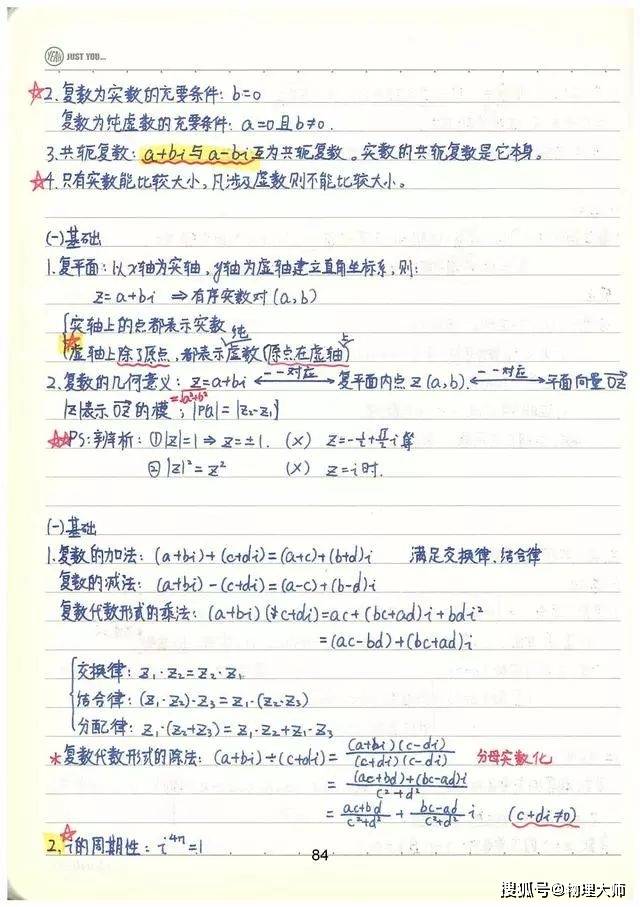 YEAH JUST YOU...
☆2. 复数为实数的充要条件: b=0
复数为纯虚数的充要条件: a=0且b≠0.
3. 共轭复数: a+bi与a-bi互为共轭复数。实数的共轭复数是它本身。
☆4. 只有实数能比较大小,凡涉及虚数则不能比较大小。
(一)基础
1. 复平面: 以x轴为实轴, y轴为虚轴建立直角坐标系, 则:
z=a+bi ⇒有序实数对(a,b)
{实轴上的点都表示实数
☆虚轴上除了原点, 都表示纯虚数(原点在虚轴上)
2. 复数的几何意义: z=a+bi ←一一对应→ 复平面内点Z(a,b). ←一一对应→ 平面向量OZ
|z|表示OZ的模=√a²+b²; |PQ|=|z₂-z₁|
☆☆PS: 辨析: ①|z|=1⇒z=±1. (×) z=-½+√3/2 i等
②|z|²=z² (×) z=i时.
(一)基础
1. 复数的加法: (a+bi)+(c+di)=(a+c)+(b+d)i 满足交换律、结合律
复数的减法: (a+bi)-(c+di)=(a-c)+(b-d)i
复数代数形式的乘法: (a+bi)(c+di)=ac+(bc+ad)i+bdi²
=(ac-bd)+(bc+ad)i
{交换律: z₁·z₂=z₂·z₁
结合律: (z₁·z₂)·z₃=z₁·(z₂·z₃)
分配律: z₁·(z₂+z₃)=z₁·z₂+z₁·z₃
*复数代数形式的除法: (a+bi)÷(c+di)=(a+bi)(c-di)/(c+di)(c-di) 分母实数化
=(ac+bd)+(bc-ad)i/c²+d²
=ac+bd/c²+d² + bc-ad/c²+d² i (c+di≠0)
2.☆i的周期性: i⁴ⁿ=1
84
搜狐号@物理大师